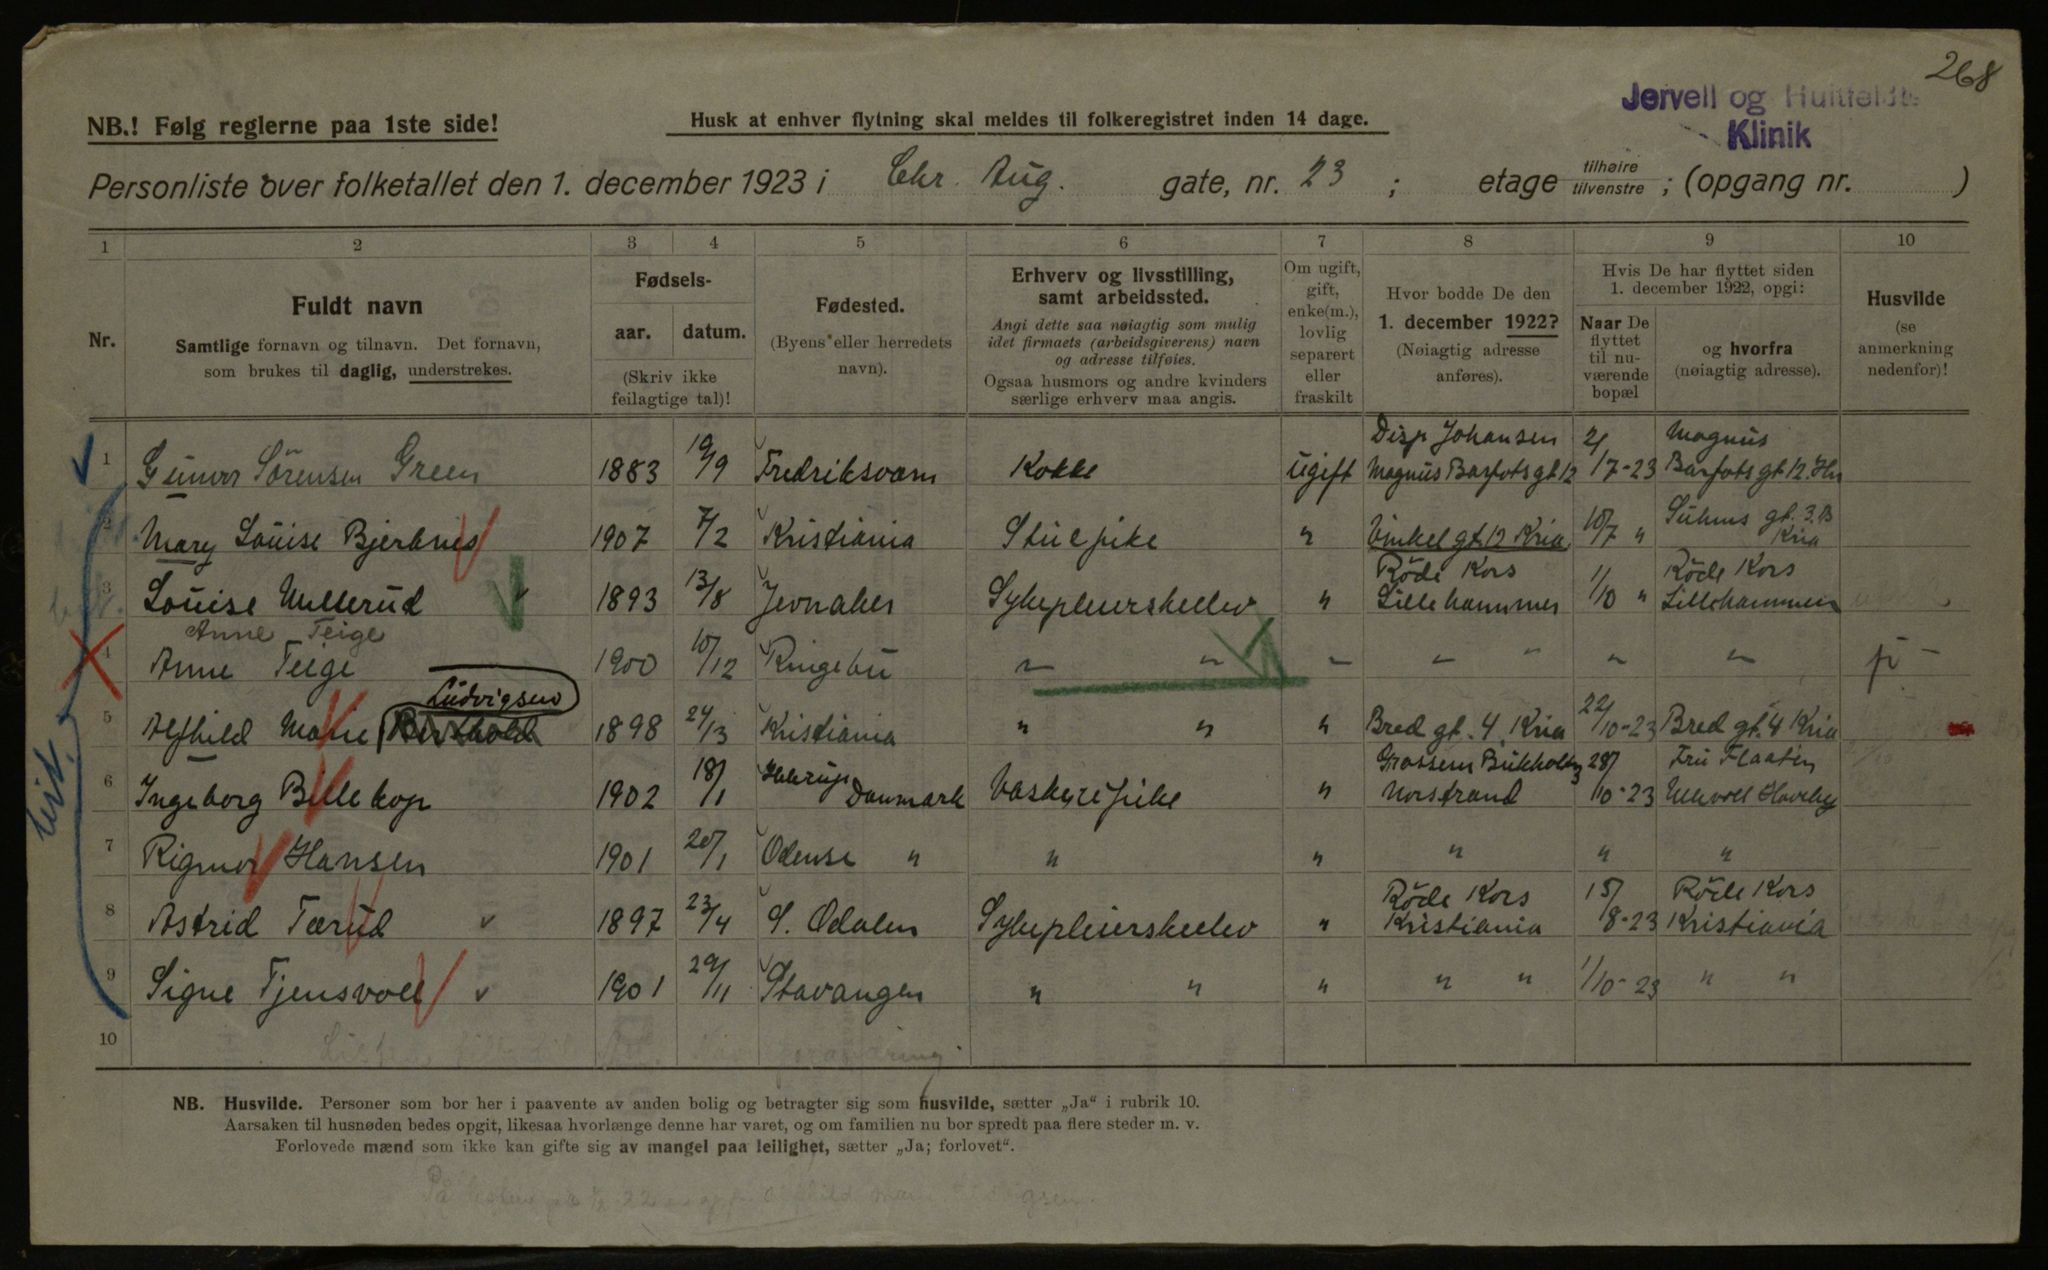 268
Jervell og Hultfeldts
Klinik
NB.! Følg reglerne paa 1ste side!
Husk at enhver flytning skal meldes til folkeregistret inden 14 dage.
Personliste over folketallet den 1. december 1923 i Chr. Aug. gate, nr. 23 ; etage tilhøire tilvenstre ; (opgang nr. )
1 2 3 4 5 6 7 8 9 10
Nr.
Fuldt navn
Samtlige fornavn og tilnavn. Det fornavn,
som brukes til daglig, understrekes.
Fødsels-
aar. datum.
(Skriv ikke
feilagtige tal)!
Fødested.
(Byens eller herredets
navn).
Erhverv og livsstilling,
samt arbeidssted.
Angi dette saa nøiagtig som mulig
idet firmaets (arbeidsgiverens) navn
og adresse tilføies.
Ogsaa husmors og andre kvinders
særlige erhverv maa angis.
Om ugift,
gift,
enke(m.),
lovlig
separert
eller
fraskilt
Hvor bodde De den
1. december 1922?
(Nøiagtig adresse
anføres).
Hvis De har flyttet siden
1. december 1922, opgi:
Naar De
flyttet
til nu-
værende
bopæl
og hvorfra
(nøiagtig adresse).
Husvilde
(se
anmerkning
nedenfor)!
1 Gunvor Sörensen Green 1883 19/9 Fredriksværn Kokke ugift Disp Johansen Magnus Barfots gt 12 2/7-23 Magnus Barfots gt 12.
2 Mary Louise Bjerknes 1907 7/2 Kristiania Stuepike " Vinkel gt. 12 Kria 10/7 " Suhms gt. 3.B Kria
3 Louise Mellerud 1893 13/8 Jevnaker Sykepleierskeelev " Röde Kors Lillehammer 1/10 " Röde Kors Lillehammer
Anne Teige
4 Anne Teige 1900 10/12 Ringebu " " " " " " "
Ludvigsen
5 Alfhild Marie Berthold 1898 24/3 Kristiania " " " Bred gt. 4. Kria 22/10-23 Bred gt. 4 Kria
6 Ingeborg Billekop 1902 18/1 Danmark Vaskeripike " Norstrand 28/10-23 Fru Flaaten Ullevoll Haveby
7 Rigmor Hansen 1901 20/1 Odense " " " " " "
8 Astrid Tærud 1897 23/4 S. Odalen Sykepleierskeelev " Röde Kors Kristiania 15/8-23 Röde Kors Kristiania
9 Signe Tjensvoll 1901 29/11 Stavanger " " " " " 1/10-23 " "
10
NB. Husvilde. Personer som bor her i paavente av anden bolig og betragter sig som husvilde, sætter „Ja“ i rubrik 10.
Aarsaken til husnøden bedes opgit, likesaa hvorlænge denne har varet, og om familien nu bor spredt paa flere steder m. v.
Forlovede mænd som ikke kan gifte sig av mangel paa leilighet, sætter „Ja; forlovet“.